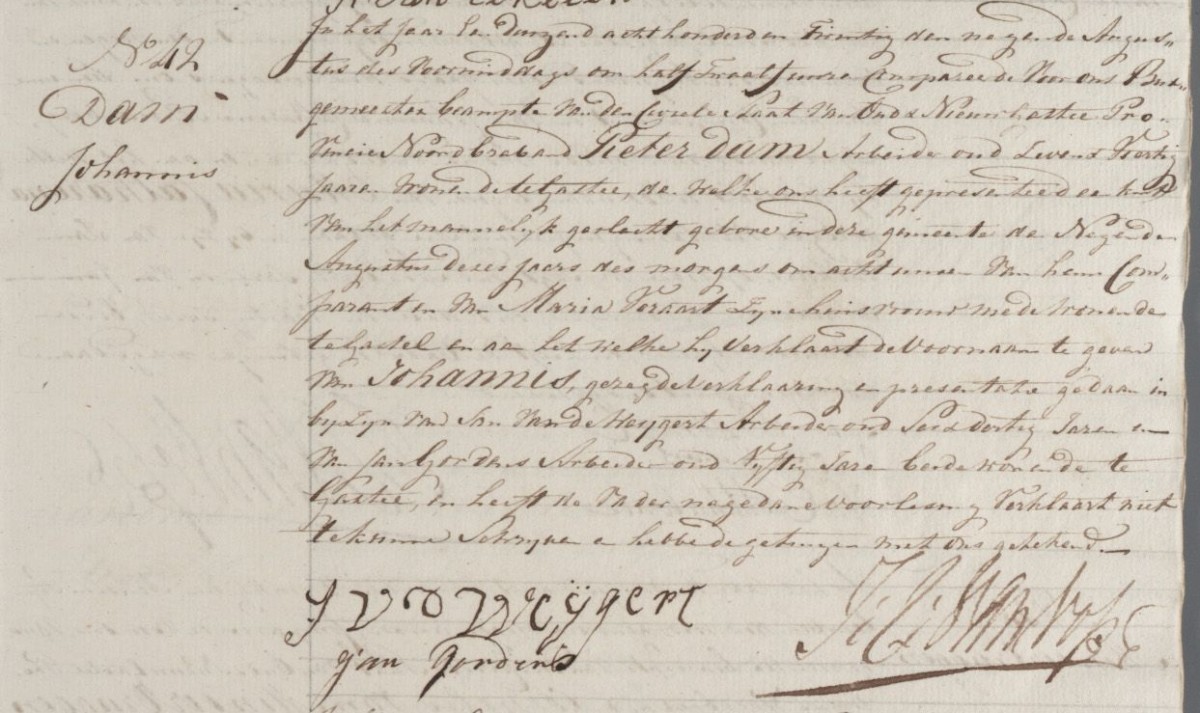 N 42
Dam
Johannis
In het Jaar Een duyzend acht honderd en Twintig den negende Augus-
tus des Voormiddags om half Twaalf uure Compareede Voor ons Bur-
gemeester beampte van den Civiele Staat van Oud & Nieuw Gastel Pro-
vincie Noord braband Pieter Dam Arbeider oud Levens Veertig
Jaare Wonende te Gastel, de welke ons heeft gepresenteerd ee kind
van het mannelyk geslacht gebore in deze gemeente de Negenden
Augustus dezes Jaars des morgens om acht uuren van hem Com-
parant en van Maria Veraart Zyne huisvrouw mede wonende
te Gastel en aan het welke hy Verklaart de Voornaam te geven
van Johannis, gezegde Verklaaring en presentatie gedaan in
byzyn van Jan van de Weygert Arbeider oud Sesd dertig Jaren en
van Jan Gordens Arbeider oud Vyftig Jare beide wonende te
Gastel, en heeft de Vader na gedane Voorlesing Verklaart niet
te kunne Schryve e hebbe de getuigen met ons getekend
J V D Weÿgert
Jan Gordens